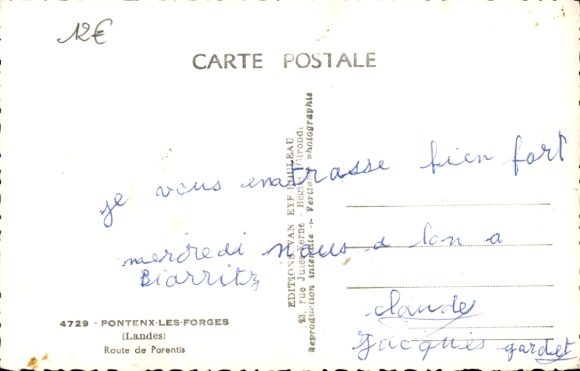 12€
CARTE POSTALE
je vous embrasse bien fort
mercredi nous a lon a
Biarritz
claude
Jacques gardet
4729 - PONTENX-LES-FORGES
(Landes)
Route de Parentis
EDITIONS VAN EYF
23, rue Jules Verne - (Gironde)
Reproduction interdite - Véritable photographie